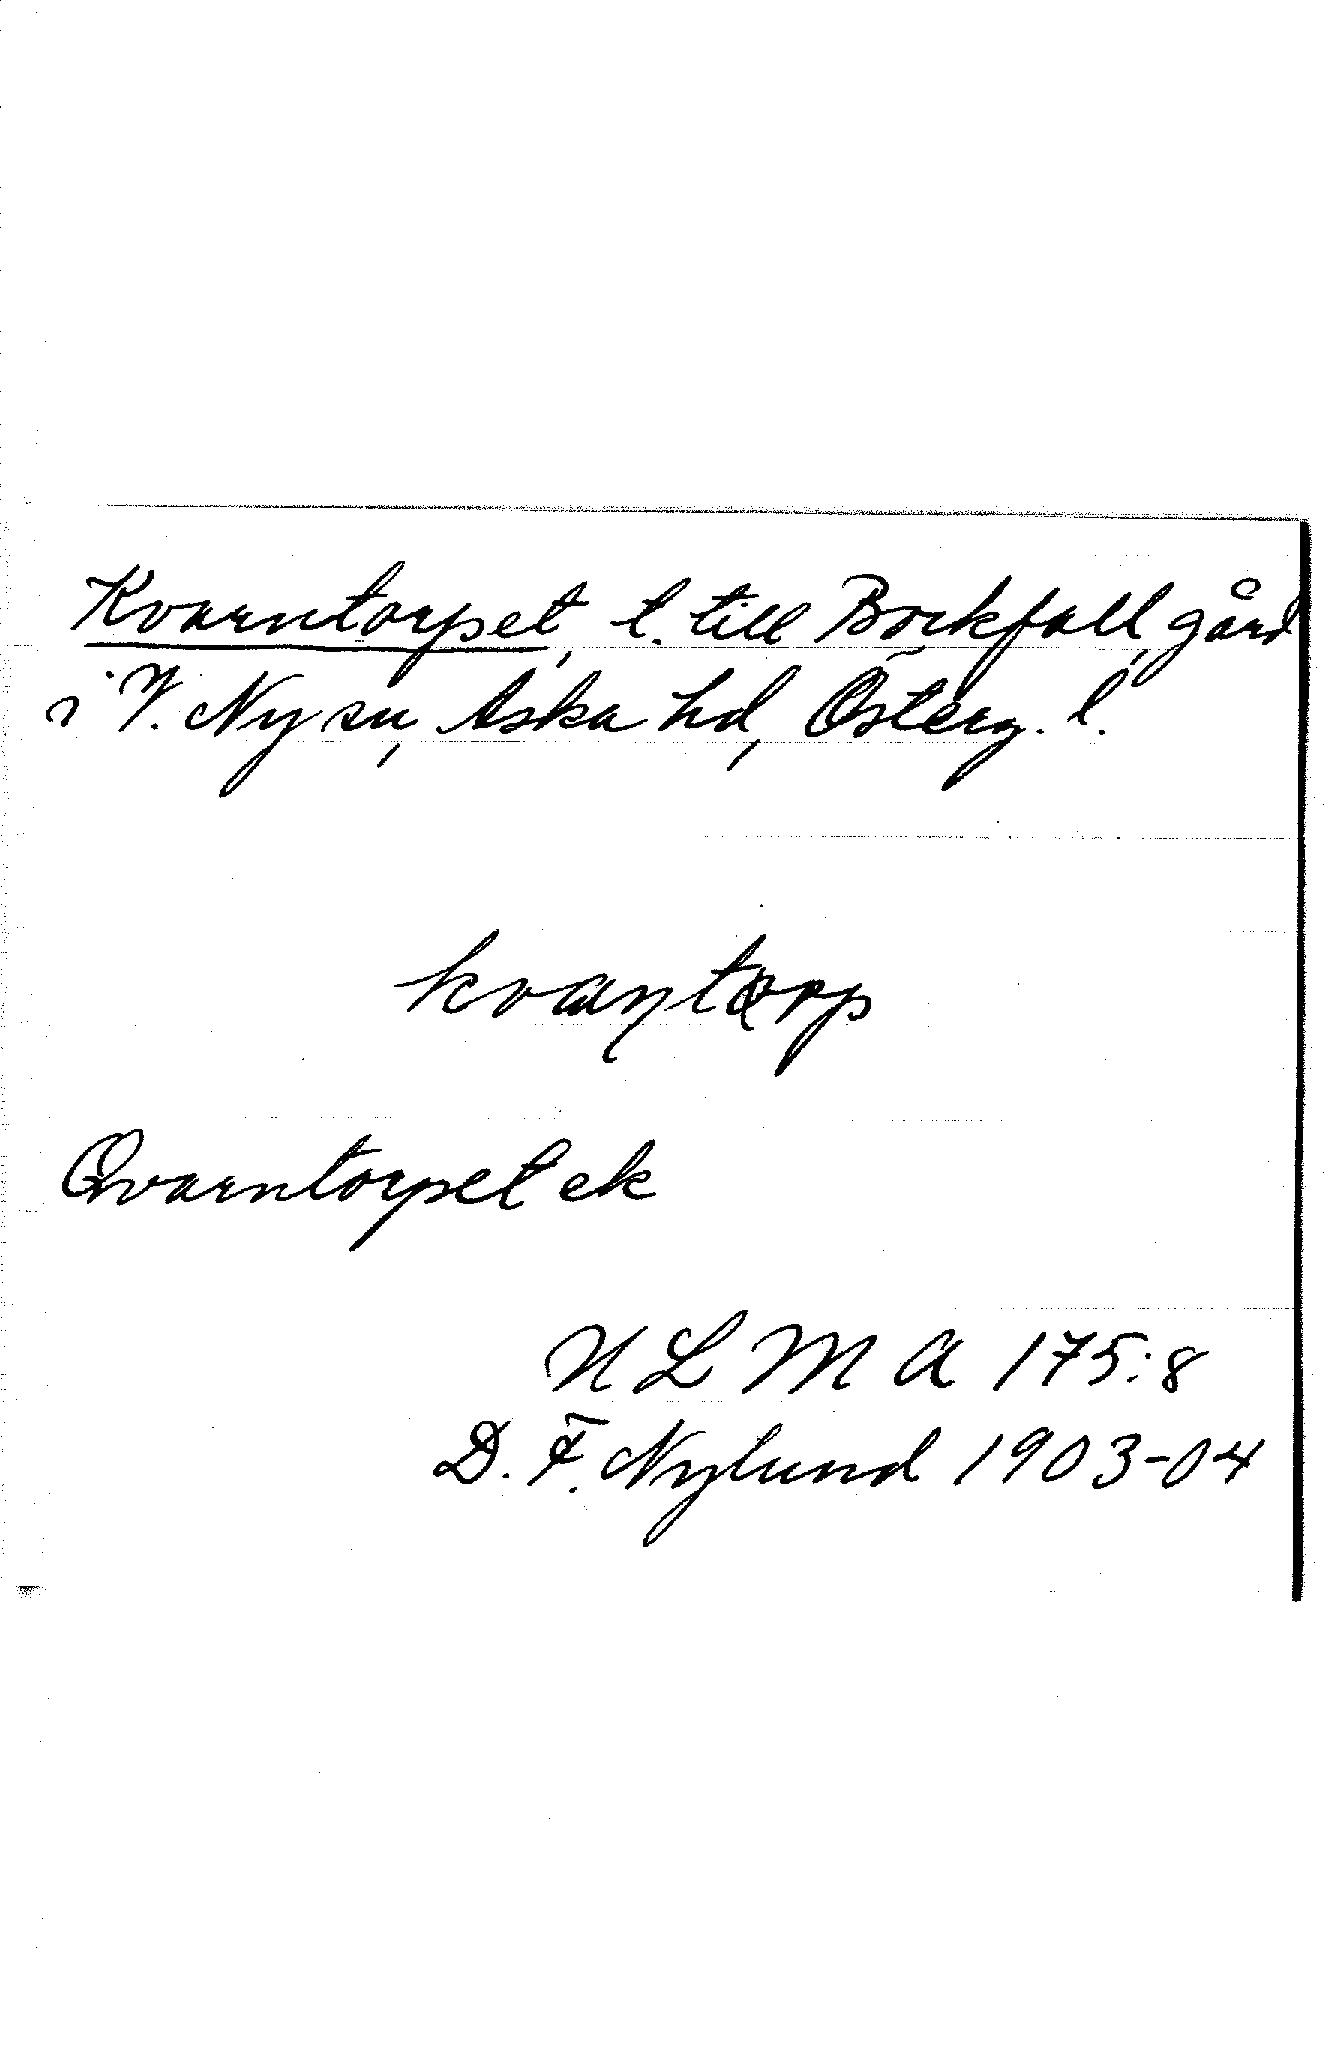 Kvarntorpet, t. till Bockfall, gård
i V. Ny sn, Aska hd, Österg. l.
Qvarntorpet ek
N L M A 175:8
D. F. Nylund 1903-04